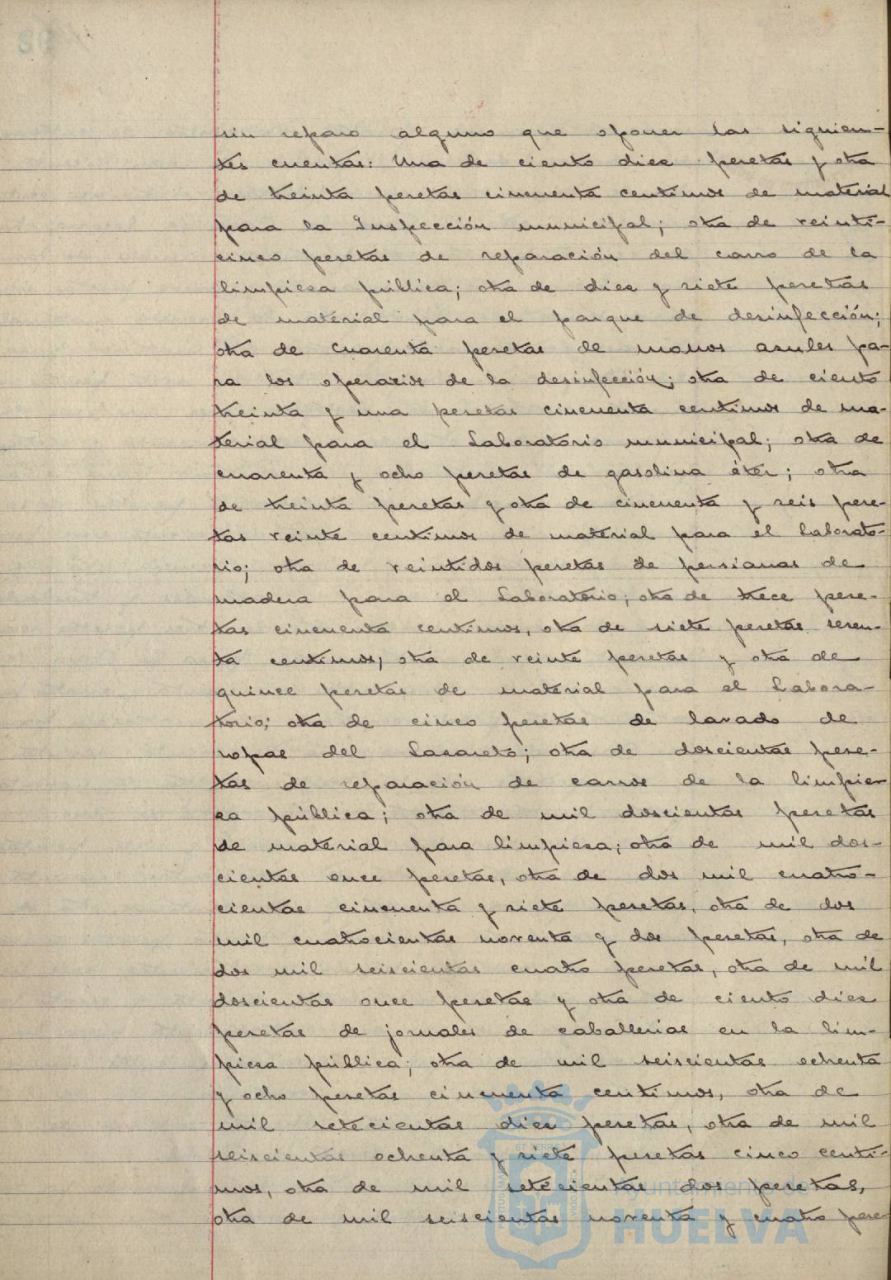 sin reparo alguno que oponer las siguien-
tes cuentas: Una de ciento diez pesetas y otra
de treinta pesetas cincuenta centimos de material
para la Inspección municipal; otra de veinti-
cinco pesetas de reparación del carro de la
limpieza pública; otra de diez y siete pesetas
de material para el parque de desinfección;
otra de cuarenta pesetas de monos azules pa-
ra los operarios de la desinfección; otra de ciento
treinta y una pesetas cincuenta centimos de ma-
terial para el Laboratorio municipal; otra de
cuarenta y ocho pesetas de gasolina éter; otra
de treinta pesetas y otra de cincuenta y seis pese-
tas veinte centimos de material para el Laborato-
rio; otra de veintidos pesetas de persianas de
madera para el Laboratorio; otra de trece pese-
tas cincuenta centimos, otra de siete pesetas seten-
ta centimos; otra de veinte pesetas y otra de
quince pesetas de material para el Labora-
torio; otra de cinco pesetas de lavado de
ropas del Lazareto; otra de doscientas pese-
tas de reparación de carros de la limpie-
za pública; otra de mil doscientas pesetas
de material para limpieza; otra de mil dos-
cientas once pesetas, otra de dos mil cuatro-
cientas cincuenta y siete pesetas, otra de dos
mil cuatrocientas noventa y dos pesetas, otra de
dos mil seiscientas cuatro pesetas, otra de mil
doscientas once pesetas y otra de ciento diez
pesetas de jornales de caballerias en la lim-
pieza pública; otra de mil seiscientas ochenta
y ocho pesetas cincuenta centimos, otra de
mil setecientas diez pesetas, otra de mil
seiscientas ochenta y siete pesetas cinco centi-
mos, otra de mil setecientas dos pesetas,
otra de mil seiscientas noventa y cuatro pese-
Ayuntamiento de
HUELVA